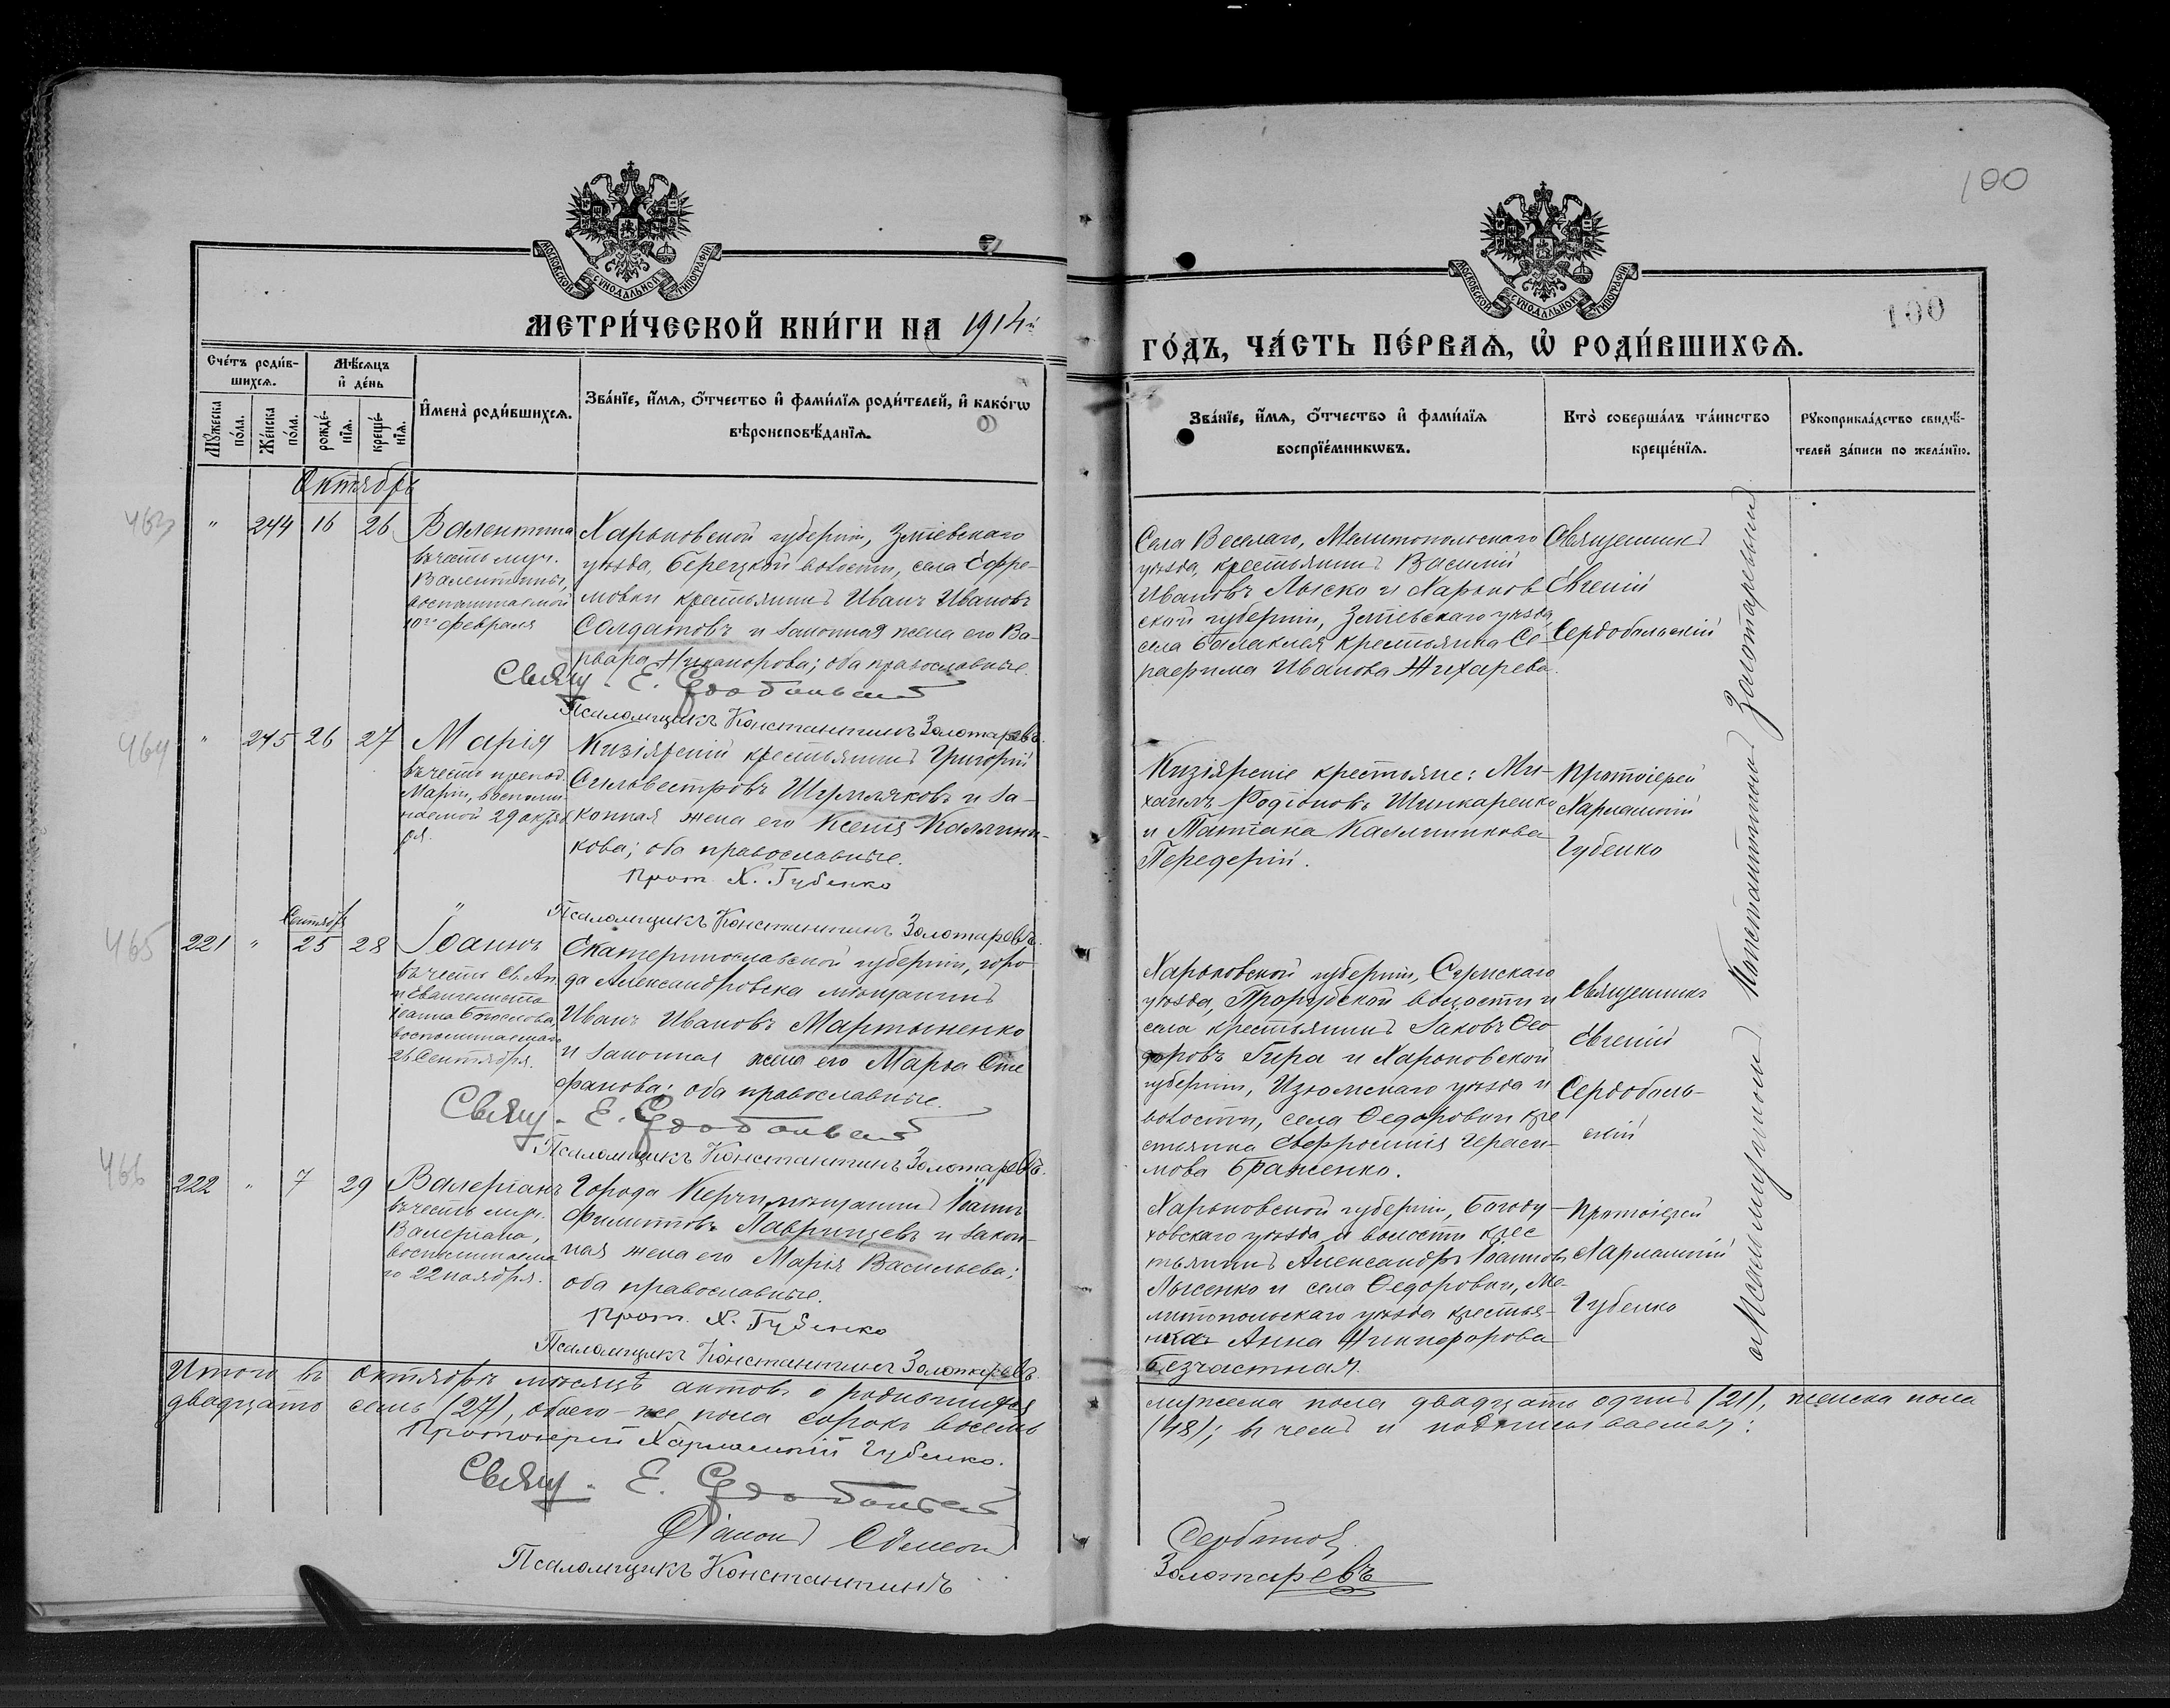 100
МОСКОВСКОЙ СУНОДАЛЬНОЙ ТИПОГРАФІИ
МОСКОВСКОЙ СУНОДАЛЬНОЙ ТИПОГРАФІИ
100
МЕТРИ́ЧЕСКОЙ КНИ́ГИ НА 1914й
ГО́ДЪ, ЧА́СТЬ ПЕ́РВАѦ, Ѡ РОДИ́ВШИХСѦ.
Сче́тъ роди́в-
шихсѧ.
Мѣ́сѧцъ
и҆ де́нь
Мꙋ́жеска
по́ла.
Же́нска
по́ла.
рожде́-
нїѧ.
креще́-
нїѧ.
И҆мена̀ роди́вшихсѧ.
Зва́нїе, и҆́мѧ, ѻ҆́тчество и҆ фами́лїѧ роди́телей, и҆ како́гѡ
вѣроисповѣ́данїѧ.
Зва́нїе, и҆́мѧ, ѻ҆́тчество и҆ фами́лїѧ
воспрїе́мникѡвъ.
Кто̀ соверша́лъ та́инство
креще́нїѧ.
Рꙋкоприкла́дство свидѣ́-
телей за́писи по жела́нїю.
Октябрь
463
" 244 16 26
Валентина
въ честь муч.
Валентины,
воспоминаемой
10го февраля
Харьковской губерніи, Зміевскаго
уѣзда, Берецкой волости, села Ефре-
мовки крестьянинъ Иванъ Ивановъ
Солдатовъ и законная жена его Ва-
рвара Никанорова; оба православные.
Свящ. Е. Сердобольскій
Псаломщикъ Константинъ Золотаревъ.
Села Веселаго, Мелитопольскаго
уѣзда, крестьянинъ Василій
Ивановъ Лыско и Харьков-
ской губерніи, Зміевскаго уѣзда,
села Балаклея крестьянка Се-
рафима Иванова Жихарева.
Священникъ
Евгеній
Сердобольскій
464
" 245 26 27
Марія
въ честь препод.
Маріи, воспоми-
наемой 29 октяб
ря.
Кизіярскій крестьянинъ Григорій
Сильвестровъ Шермячковъ и за-
конная жена его Ксенія Каллини-
кова; оба православные.
Прот. Х. Губенко
Псаломщикъ Константинъ Золотаревъ.
Кизіярскіе крестьяне: Ми-
хаилъ Родіоновъ Шинкаренко
и Татіана Каллиникова
Передерій.
Протоіерей
Харлампій
Губенко
465
Сентябрь
221 " 25 28
Іоаннъ
въ честь Св. Ап.
и Евангелиста
Іоанна Богослова,
воспоминаемаго
26 Сентября.
Екатеринославской губерніи, горо-
да Александровска мѣщанинъ
Иванъ Ивановъ Мартыненко
и законная жена его Марѳа Сте
фанова; оба православные.
Свящ. Е. Сердобольскій
Псаломщикъ Константинъ Золотаревъ.
Харьковской губерніи, Сумскаго
уѣзда, Прорубской волости и
села крестьянинъ Іаковъ Ѳео-
доровъ Гира и Харьковской
губерніи, Изюмскаго уѣзда и
волости, села Ѳедоровки кре
стьянка Евфросинія Гераси-
мова Браженко.
Священникъ
Евгеній
Сердоболь-
скій
466
222 " 7 29
Валеріанъ
въ честь муч.
Валеріана,
воспоминаема
го 22 ноября.
Города Керчи мѣщанинъ Іоаннъ
Филипповъ Лавринцевъ и закон-
ная жена его Марія Васильева;
оба православные.
Прот. Х. Губенко
Псаломщикъ Константинъ Золотаревъ.
Харьковской губерніи, Богоду-
ховскаго уѣзда и волости крес
тьянинъ Александръ Іоанновъ
Лысенко и села Ѳедоровки, Ме-
литопольскаго уѣзда крестья-
нка Анна Никифорова
Безчастная.
Протоіерей
Харлампій
Губенко
Псаломщикъ Константинъ Золотаревъ
Итого въ октябрѣ мѣсяцѣ актовъ о родившихся
мужеска пола двадцать одинъ (21), женска пола
двадцать семь (27), обоего-же пола сорокъ восемь
(48); въ чемъ и подписываемся:
Протоіерей Харлампій Губенко.
Свящ. Е. Сердобольскій
Діаконъ Симеонъ Сербиновъ
Псаломщикъ Константинъ Золотаревъ